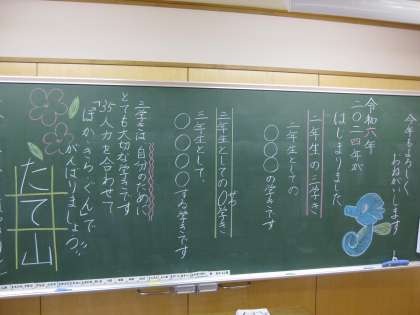 今年もよろしく
おねがいします
令和六年
二〇二四年が
はじまりました
二年生の三学き
二年生としての
〇〇〇の学きです
三年生としての〇学き
ぜろ
三年生として、
〇〇〇〇する学きです
三学きは自分のために
とても大切な学きです
35人力を合わせて
「ぽかぽかきらきらぐんぐん」で
がんばりましょう!!
たて山